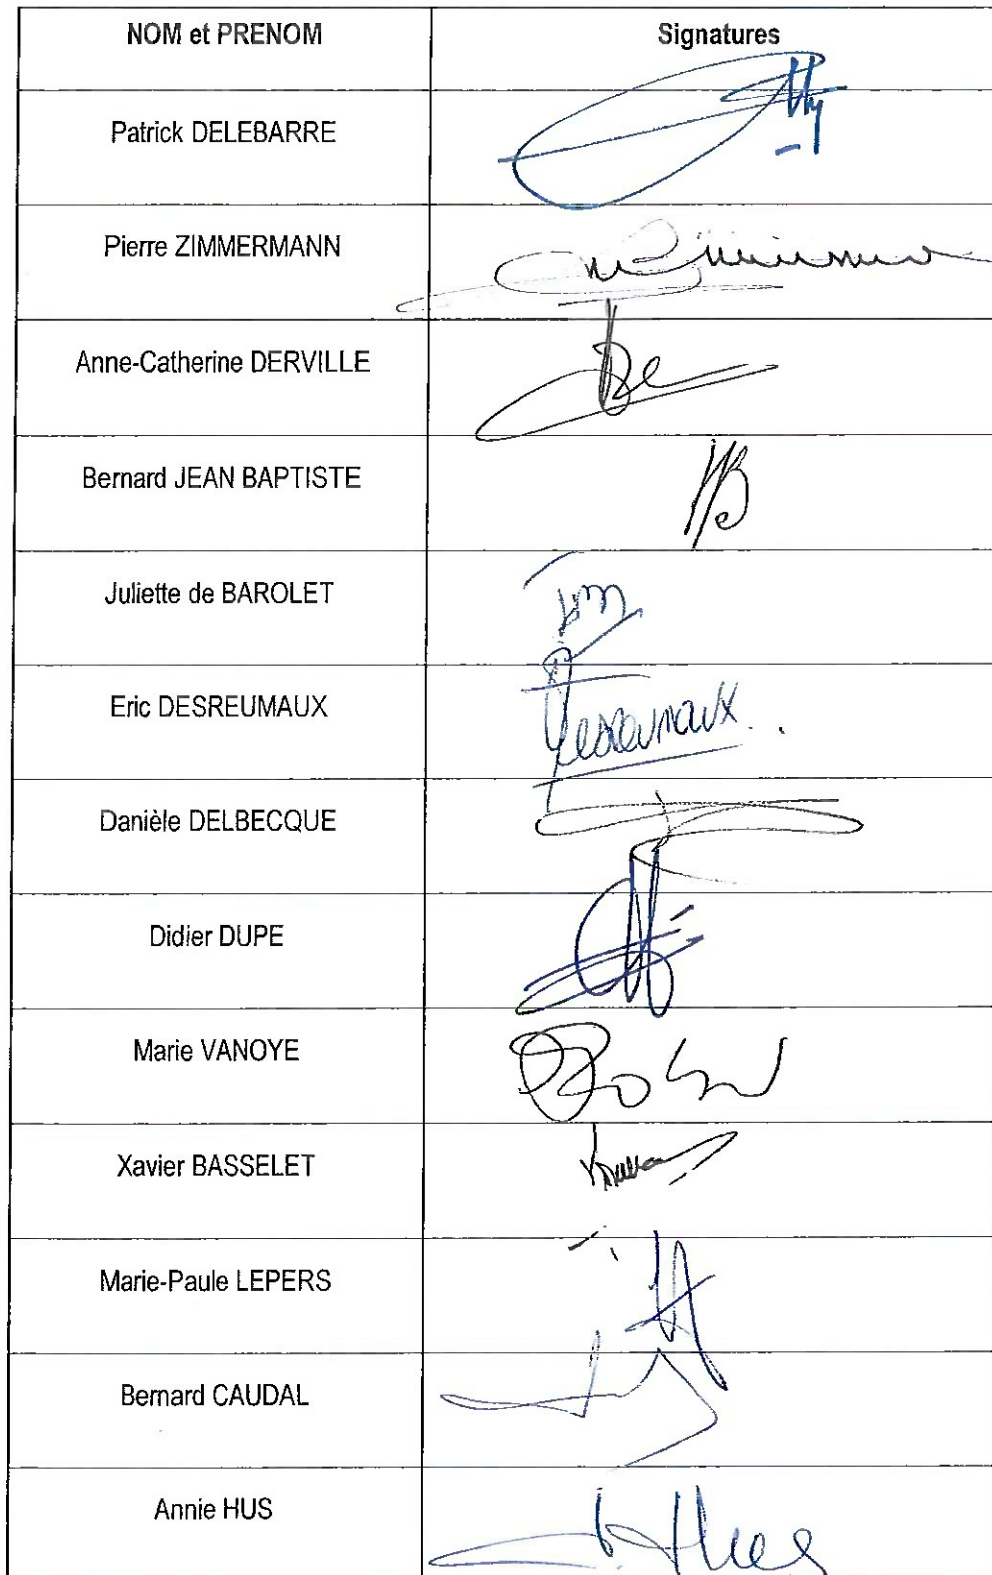 NOM et PRENOM Signatures
Patrick DELEBARRE
Pierre ZIMMERMANN
Anne-Catherine DERVILLE
Bernard JEAN BAPTISTE
Juliette de BAROLET
Eric DESREUMAUX Desreumaux
Danièle DELBECQUE
Didier DUPE
Marie VANOYE
Xavier BASSELET
Marie-Paule LEPERS
Bernard CAUDAL
Annie HUS